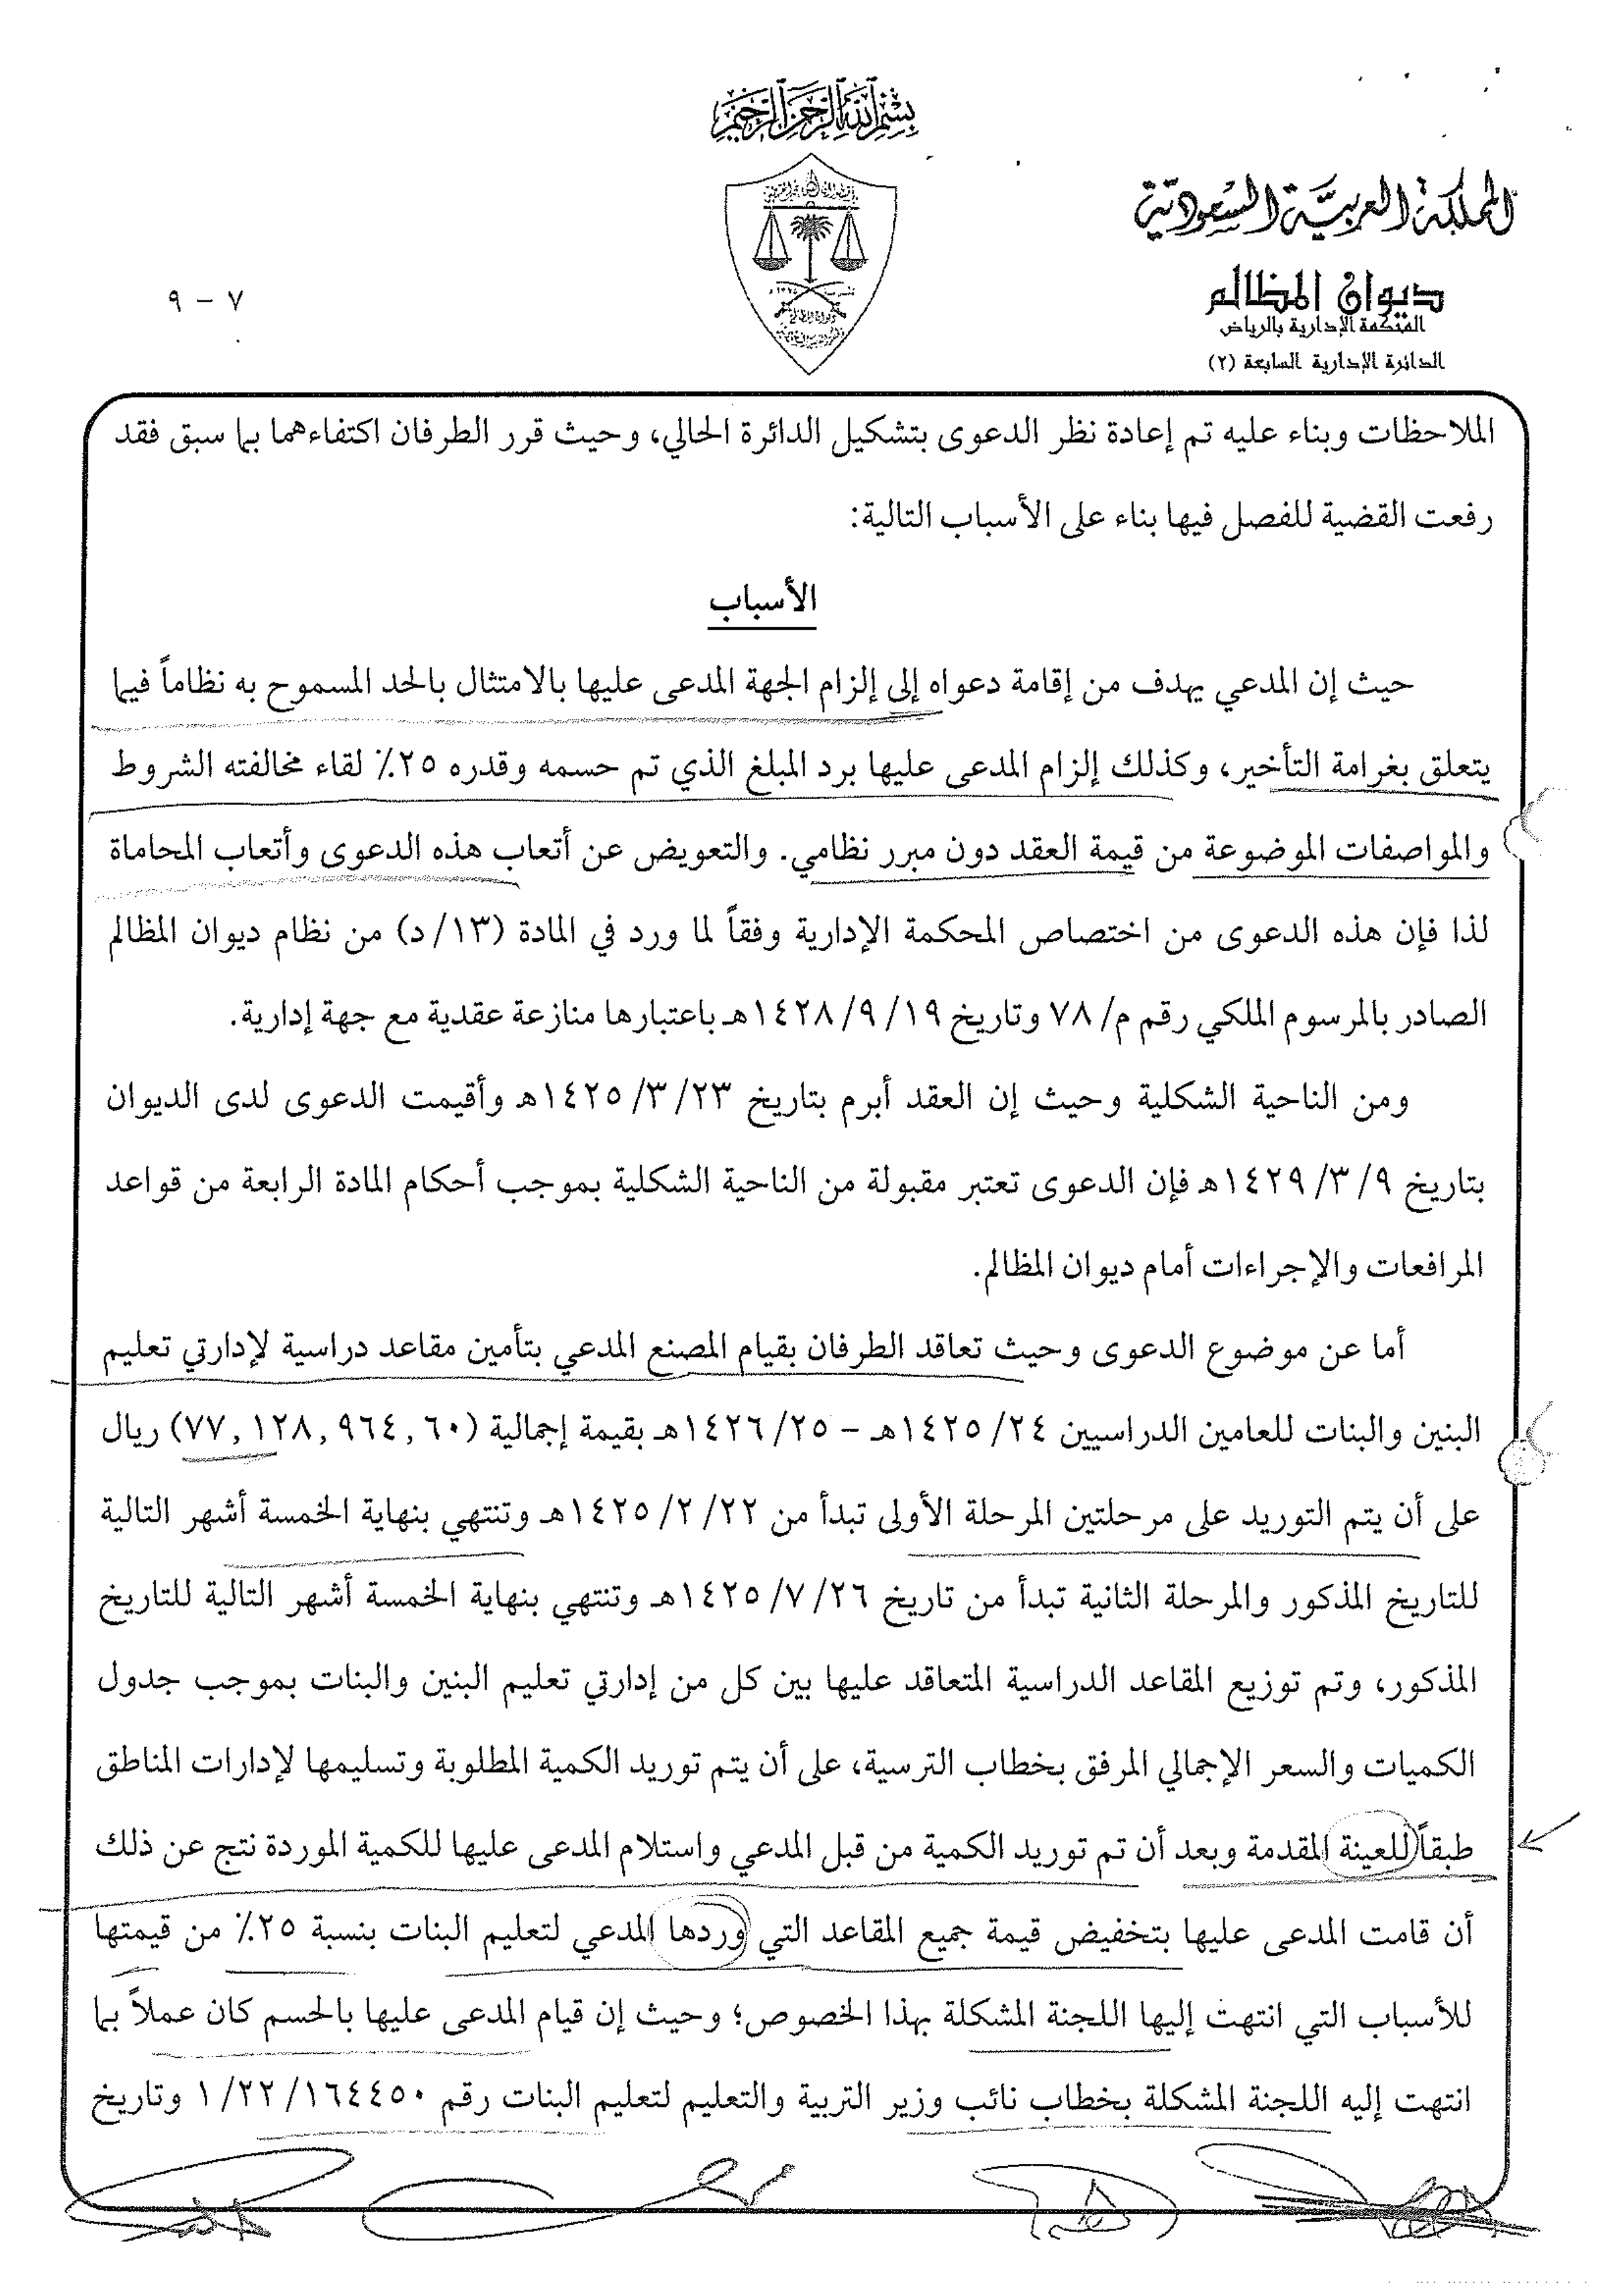 بسم الله الرحمن الرحيم
المملكة العربية السعودية
ديوان المظالم
المحكمة الإدارية بالرياض
الدائرة الإدارية السابعة (٢)
٧ - ٩
الملاحظات وبناء عليه تم إعادة نظر الدعوى بتشكيل الدائرة الحالي، وحيث قرر الطرفان اكتفاءهما بما سبق فقد
رفعت القضية للفصل فيها بناء على الأسباب التالية:
الأسباب
حيث إن المدعي يهدف من إقامة دعواه إلى إلزام الجهة المدعى عليها بالامتثال بالحد المسموح به نظاماً فيما
يتعلق بغرامة التأخير، وكذلك إلزام المدعى عليها برد المبلغ الذي تم حسمه وقدره ٢٥٪ لقاء مخالفته الشروط
والمواصفات الموضوعة من قيمة العقد دون مبرر نظامي. والتعويض عن أتعاب هذه الدعوى وأتعاب المحاماة
لذا فإن هذه الدعوى من اختصاص المحكمة الإدارية وفقاً لما ورد في المادة (١٣/د) من نظام ديوان المظالم
الصادر بالمرسوم الملكي رقم م/٧٨ وتاريخ ١٤٢٨/٩/١٩هـ باعتبارها منازعة عقدية مع جهة إدارية.
ومن الناحية الشكلية وحيث إن العقد أبرم بتاريخ ١٤٢٥/٣/٢٣هـ وأقيمت الدعوى لدى الديوان
بتاريخ ١٤٢٩/٣/٩هـ فإن الدعوى تعتبر مقبولة من الناحية الشكلية بموجب أحكام المادة الرابعة من قواعد
المرافعات والإجراءات أمام ديوان المظالم.
أما عن موضوع الدعوى وحيث تعاقد الطرفان بقيام المصنع المدعي بتأمين مقاعد دراسية لإدارتي تعليم
البنين والبنات للعامين الدراسيين ١٤٢٥/٢٤هـ – ١٤٢٦/٢٥هـ بقيمة إجمالية (٧٧,١٢٨,٩٦٤,٦٠) ريال
على أن يتم التوريد على مرحلتين المرحلة الأولى تبدأ من ١٤٢٥/٢/٢٢هـ وتنتهي بنهاية الخمسة أشهر التالية
للتاريخ المذكور والمرحلة الثانية تبدأ من تاريخ ١٤٢٥/٧/٢٦هـ وتنتهي بنهاية الخمسة أشهر التالية للتاريخ
المذكور، وتم توزيع المقاعد الدراسية المتعاقد عليها بين كل من إدارتي تعليم البنين والبنات بموجب جدول
الكميات والسعر الإجمالي المرفق بخطاب الترسية، على أن يتم توريد الكمية المطلوبة وتسليمها لإدارات المناطق
طبقاً للعينة المقدمة وبعد أن تم توريد الكمية من قبل المدعي واستلام المدعى عليها للكمية الموردة نتج عن ذلك
أن قامت المدعى عليها بتخفيض قيمة جميع المقاعد التي وردها المدعي لتعليم البنات بنسبة ٢٥٪ من قيمتها
للأسباب التي انتهت إليها اللجنة المشكلة بهذا الخصوص؛ وحيث إن قيام المدعى عليها بالحسم كان عملاً بما
انتهت إليه اللجنة المشكلة بخطاب نائب وزير التربية والتعليم لتعليم البنات رقم ١/٢٢/١٦٤٤٥٠ وتاريخ